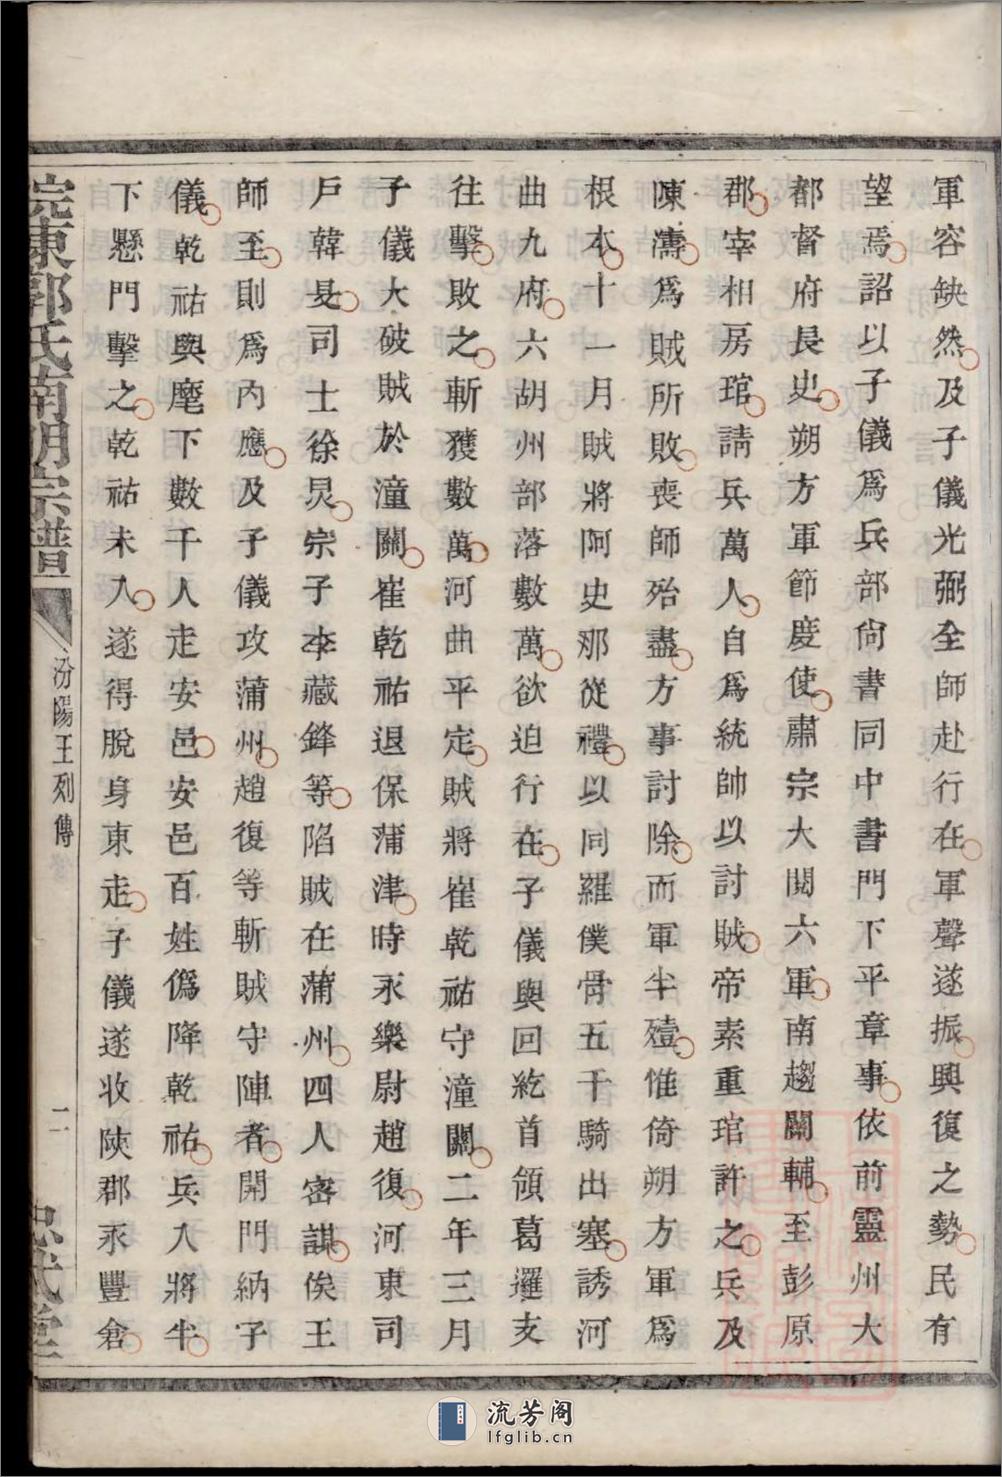 軍容缺然及子儀光弼全師赴行在軍聲遂振興復之勢民有
望焉詔以子儀爲兵部尙書同中書門下平章事依前靈州大
都督府長史朔方軍節度使肅宗大閱六軍南趨關輔至彭原
郡宰相房琯請兵萬人自爲統帥以討賊帝素重琯許之兵及
陳濤爲賊所敗喪師殆盡方事討除而軍半殪惟倚朔方軍爲
根本十一月賊將阿史那從禮以同羅僕骨五千騎出塞誘河
曲九府六胡州部落數萬欲迫行在子儀與回紇首領葛邏支
往擊敗之斬獲數萬河曲平定賊將崔乾祐守潼關二年三月
子儀大破賊於潼關崔乾祐退保蒲津時永樂尉趙復河東司
戶韓旻司士徐炅宗子李藏鋒等陷賊在蒲州四人密謀俟王
師至則爲內應及子儀攻蒲州趙復等斬賊守陣者開門納子
儀乾祐與麾下數千人走安邑安邑百姓僞降乾祐兵入將半
下懸門擊之乾祐未入遂得脫身東走子儀遂收陝郡永豐倉
皖東郭氏南明宗譜
汾陽王列傳
二
忠武堂
流芳阁
lfglib.cn